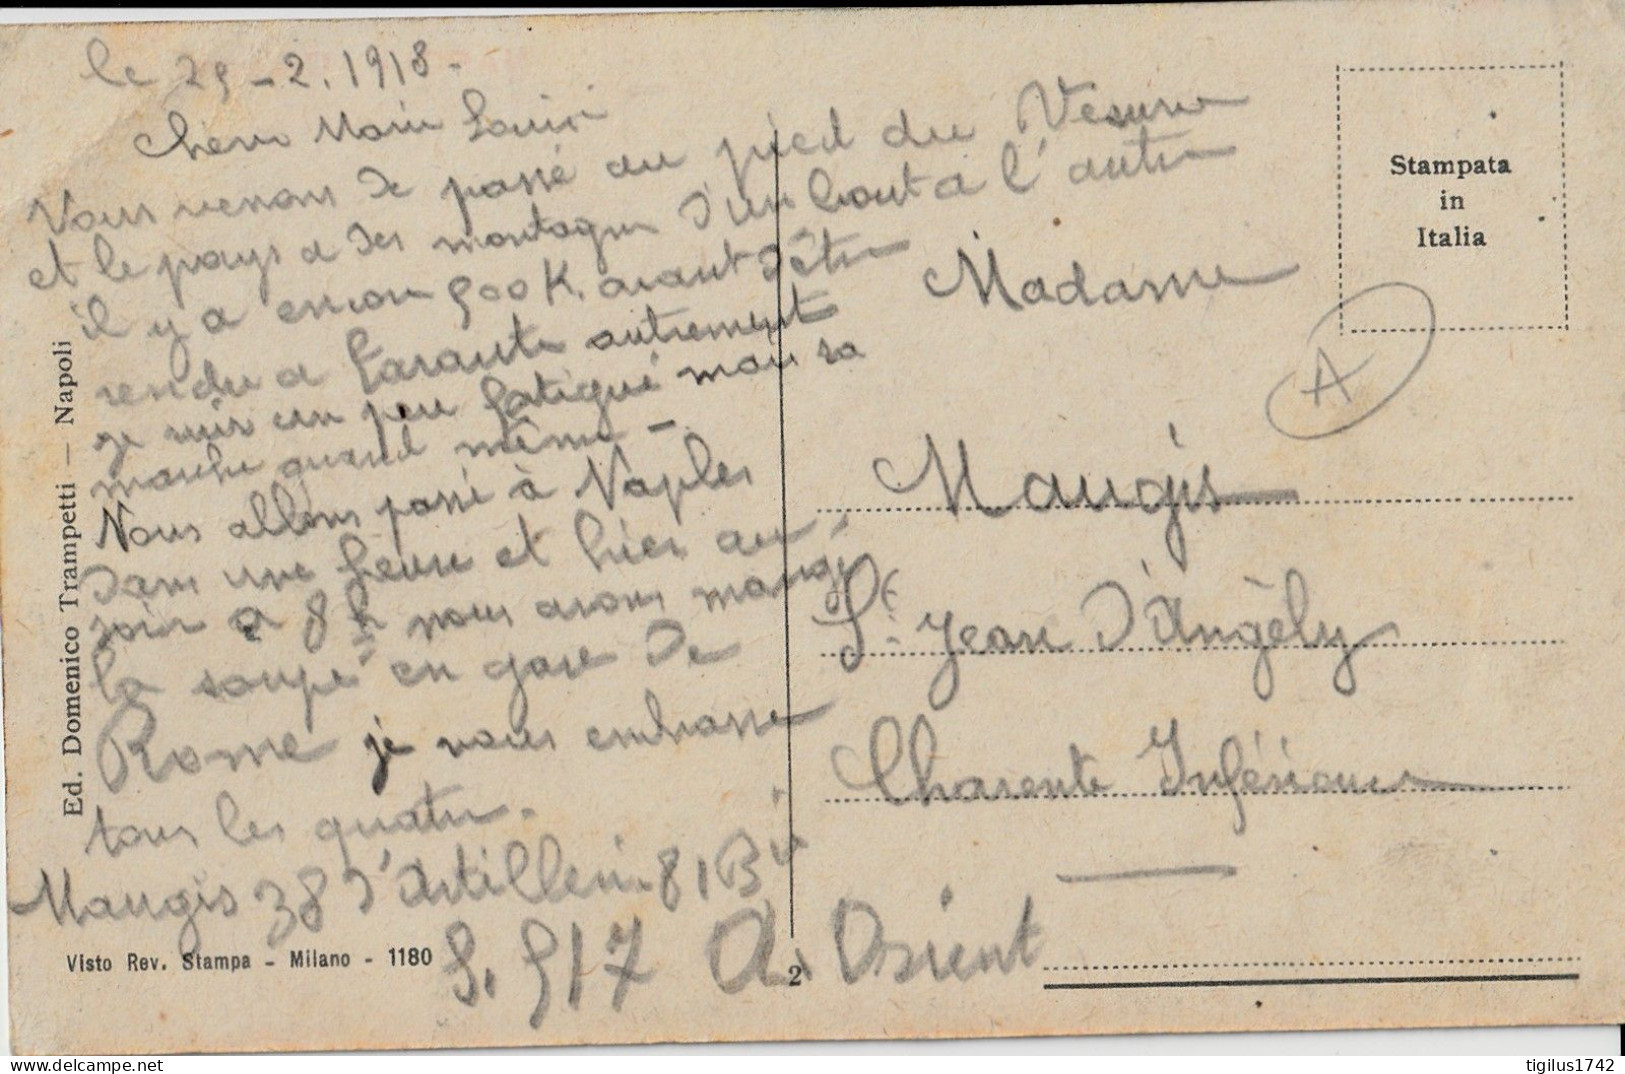 le 25-2.1918.
chere Marie Louise
Nous venons de passé au pied du Vesuve
et le pays a des montagne d'un bout a l'autre
il y a encore 900 K. avant d'être
rendu a Tarante autrement
je suis un peu fatigué mais sa
marche quand même -
Nous allons passé à Naples
dans une heure et hier au
soir a 8 h nous avons mangé
la soupe en gare de
Rome je vous embrasse
tous les quatre.
Maugis 38 d'Artillerie 81 Bie
S. 517 A. Orient
Madame
Maugis
St. Jean D'Angèly
Charente Inférieure
A
Stampata
in
Italia
Ed. Domenico Trampetti — Napoli
Visto Rev. Stampa - Milano - 1180
2
tigilus1742